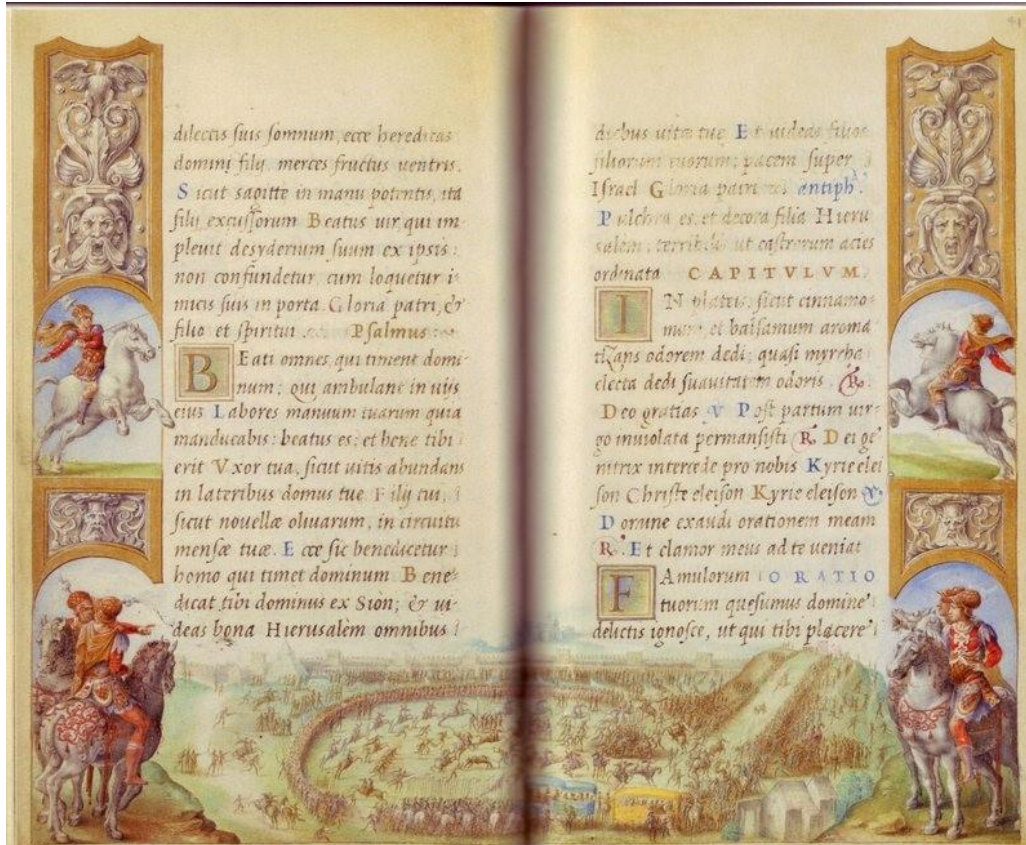 dilectis suis somnum, ecce hereditas
domini filij merces fructus uentris.
Sicut sagitte in manu potentis, ita
filij excussorum Beatus uir qui im
pleuit desyderium suum ex ipsis:
non confundetur cum loquetur i-
micis suis in porta. Gloria patri, &
filio et spiritui Psalmus
BEati omnes qui timent domi-
num: qui ambulant in uijs
eius Labores manuum tuarum quia
manducabis: beatus es: et bene tibi
erit Vxor tua, sicut uitis abundans
in lateribus domus tue Filij tui,
sicut nouellæ oliuarum, in circuitu
mensæ tuæ. Ecce sic benedicetur
homo qui timet dominum Bene-
dicat tibi dominus ex Siòn; & ui-
deas bona Hierusalèm omnibus
91
diebus uitæ tue Et uideas filios
filiorum tuorum; pacem super
Israel Gloria patri antiph.
Pulchra es, et decora filia Hieru
salem, terribilis ut castrorum acies
ordinata CAPITVLVM.
IN plateis, sicut cinnamo-
mum, et balsamum aroma
tizans odorem dedi; quasi myrrha
electa dedi suauitatem odoris. R.
Deo gratias V Post partum uir-
go inuiolata permansisti R. Dei ge
nitrix intercede pro nobis Kyrie elei
son Christe eleison Kyrie eleison V.
Domine exaudi orationem meam
R. Et clamor meus ad te ueniat
FAmulorum ORATIO
tuorum quesumus domine
delictis ignosce, ut qui tibi placere